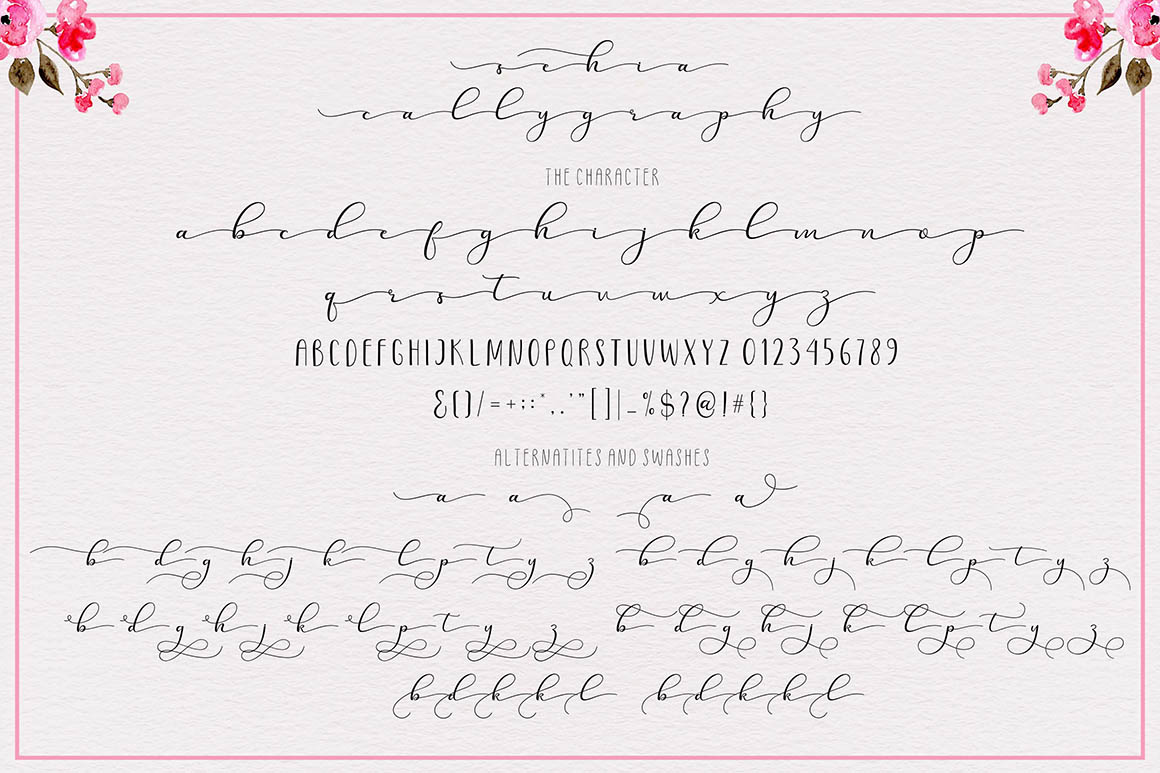 schia
callygraphy
THE CHARACTER
a b c d e f g h i j k l m n o p
q r s t u v w x y z
ABCDEFGHIJKLMNOPQRSTUVWXYZ 0123456789
&()/=+;:*,.'"[]|_%$?@!#{}
ALTERNATITES AND SWASHES
a a a a
b d g h j k l p t y z b d g h j k l p t y z
b d g h j k l p t y z b d g h j k l p t y z
b d h k l b d h k l